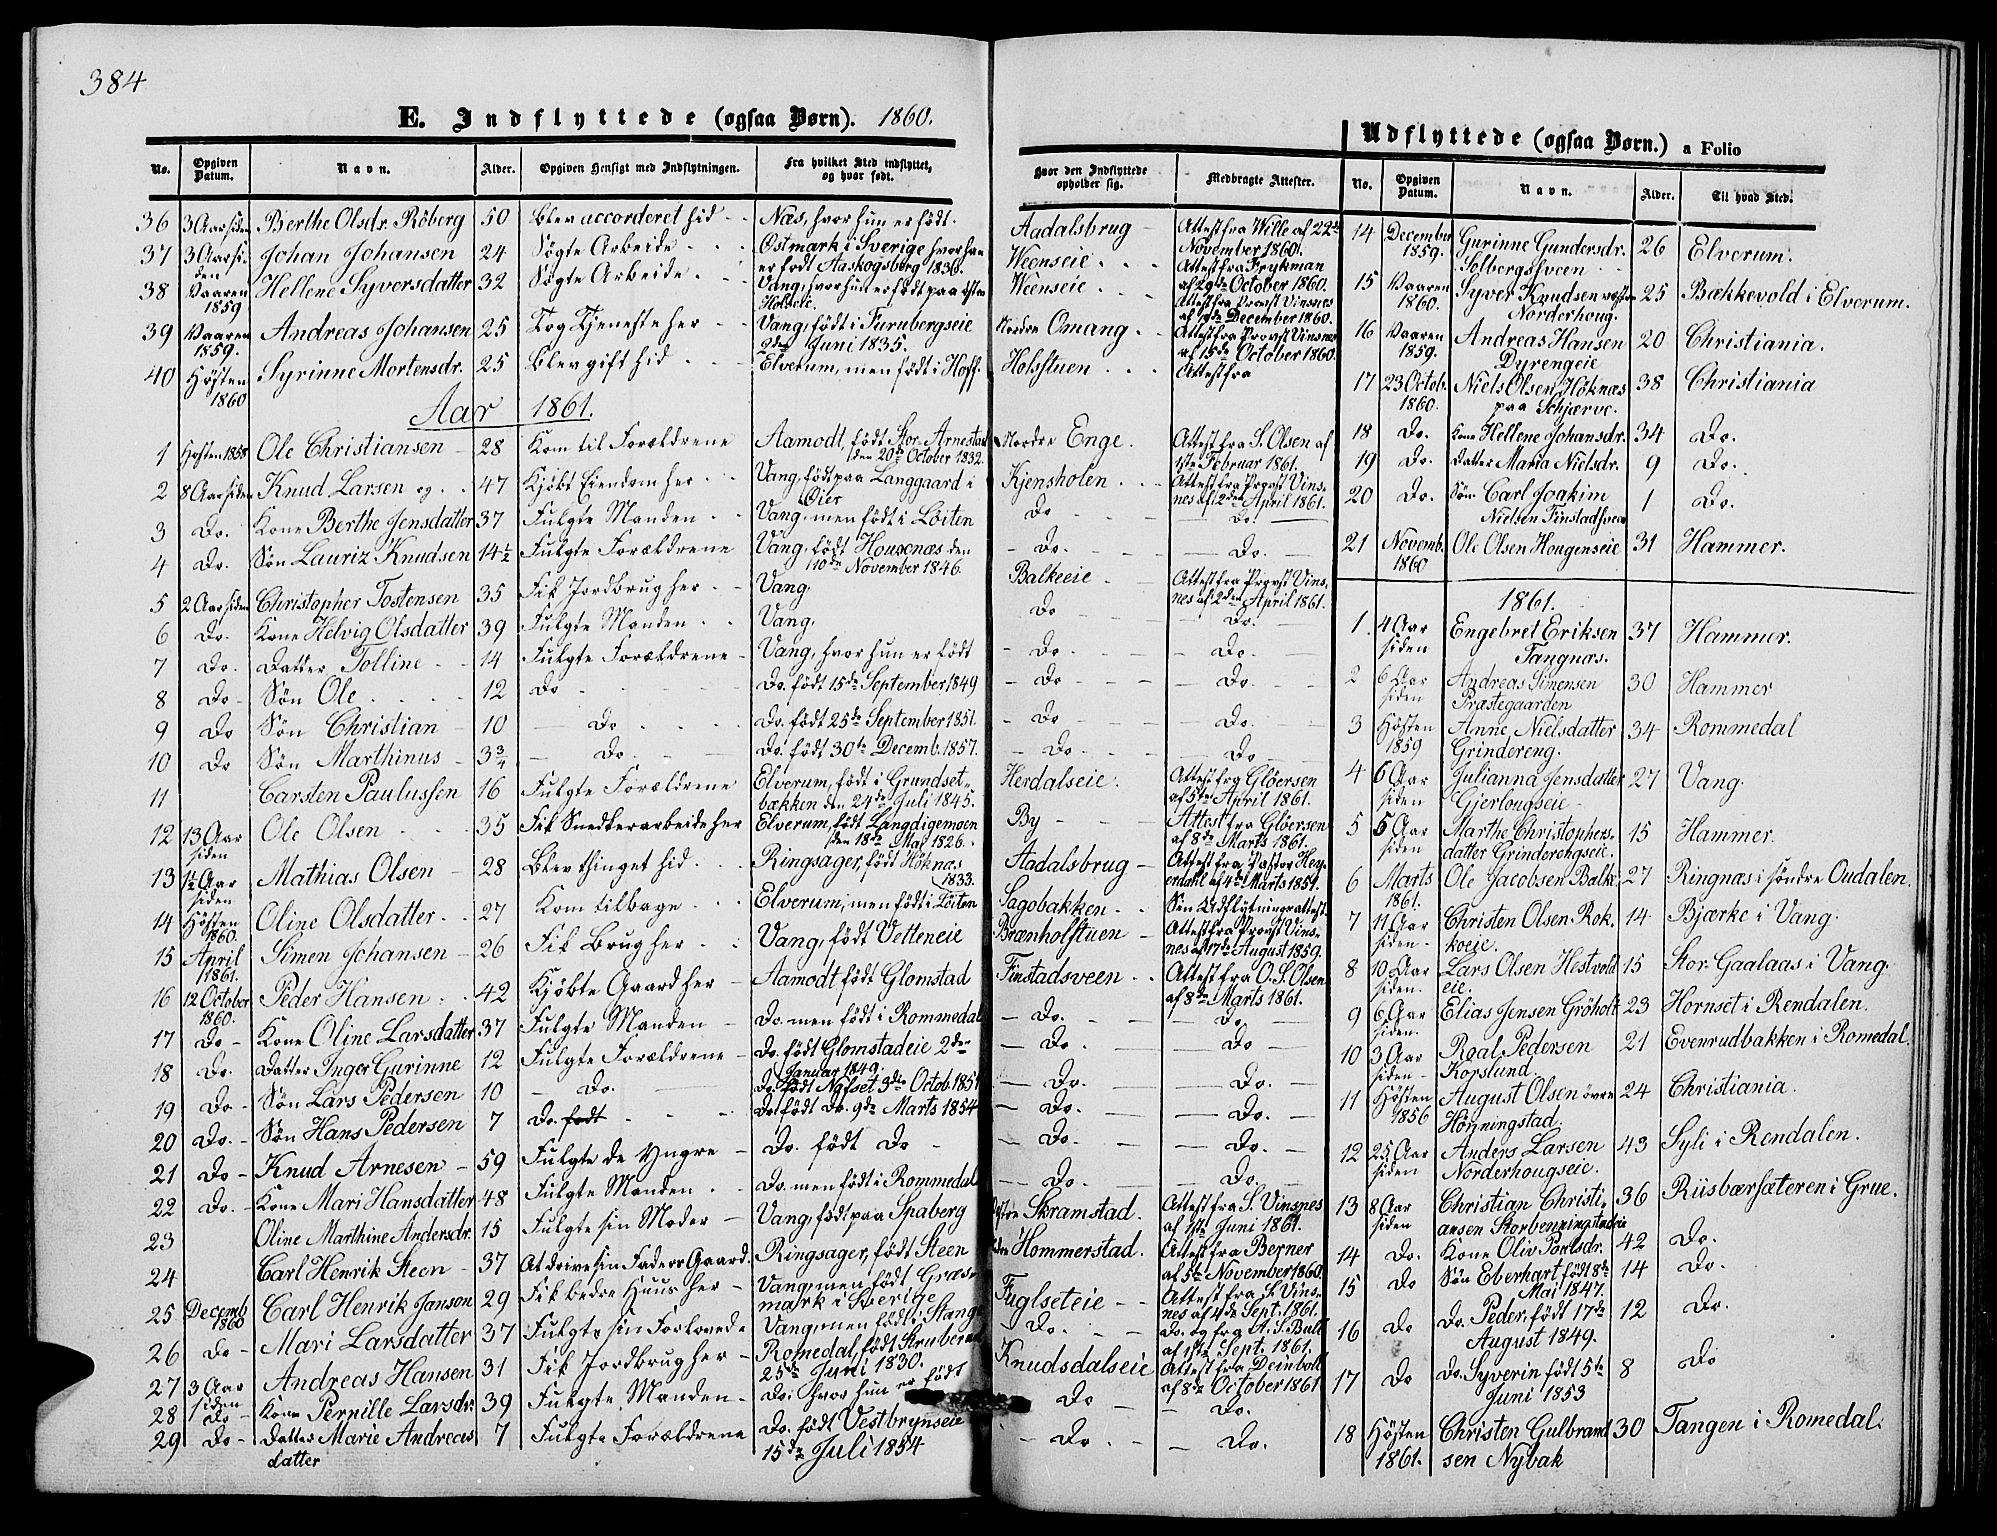 384
E. Indflyttede (ogsaa Børn). 1860.
No. | Opgiven Datum. | Navn. | Alder. | Opgiven Hensigt med Indflytningen. | Fra hvilket Sted indflyttet, og hvor født. | Hvor den Indflyttede opholder sig. | Medbragte Attester.
36 3 Aar siden Berthe Olsdr. Röberg 50 Blev accorderet hid Næs, hvor hun er født. Aadalsbrug Attest fra Wille af 22de November 1860.
37 3 Aar siden Johan Johansen 24 Søgte Arbeide Østmark i Sverige hvor han er født Aaskogsberg 1836. Weenseie Attest fra Frykman af 29de October 1860.
38 Vaaren 1859 Hellene Syversdatter 32 Søgte Arbeide Vang, hvor hun er født paa Holseie. Weenseie Attest fra Provst Vinsnes December 1860.
39 Vaaren 1859. Andreas Johansen 25 Tog Tjeneste her Vang, født i Furubergseie 2den Juni 1835. Nordre Omang Attest fra Provst Vinsnes af 15de October 1860.
40 Høsten 1860 Syrinne Mortensdr. 25 Blev gift hid Elverum, men født i Hoff. Holsstuen Attest fra
Aar 1861.
1 Høsten 1858 Ole Christiansen 28 Kom til Forældrene Aamodt, født Stor-Arnestad den 20de October 1832. Nordre Enge. Attest fra S. Olsen af 1ste Februar 1861.
2 8 Aar siden Knud Larsen og 47 Kjöbt Eiendom her Vang, født paa Langgaard i Oier Kjensholen Attest fra Provst Vinsnes af 2den April 1861.
3 Do. Kone Berthe Jensdatter 37 Fulgte Manden Vang, men født i Löiten Do Do.
4 Do. Søn Lauriz Knudsen 14½ Fulgte Forældrene Vang, født Housenæs den 10de November 1846. Do. Do.
5 2 Aar siden Christopher Tostensen 35 Fik Jordbrug her Vang. Balkeeie Attest fra Provst Vinsnes af 2den April 1861.
6 Do. Kone Helvig Olsdatter 39 Fulgte Manden Vang. Do Do.
7 Do. Datter Tolline 14 Fulgte Forældrene Vang, hvor hun er født Do. Do.
8 Do Søn Ole 12 Do Do. født 15de September 1849 Do Do
9 Do Søn Christian 10 Do. Do. født 25de September 1851. Do Do.
10 Do Søn Marthinus 3¾ Do. Do. født 30te Decemb. 1857. Do. Do
11 Carsten Paulussen 16 Fulgte Forældrene Elverum, født i Grundsetbækken den 24de Juli 1845. Herdalseie. Attest fra Glöersen af 5te April 1861.
12 13 Aar siden Ole Olsen 35 Fik Snedkerarbeide her Elverum, født Langdigemoen den 18de Mai 1826. By Attest fra Glöersen af 8de Marts 1861.
13 1½ Aar siden Mathias Olsen 28 Blev thinget hid Ringsager, født Höknæs 1833. Aadalsbrug Attest fra Pastor Heyerdahl af 4de Marts 1851.
14 Høsten 1860. Oline Olsdatter 27 Kom tilbage Elverum, men født i Löiten Sagobakken Sin Udflytningsattest.
15 April 1861. Simen Johansen 26 Fik Brug her Vang, født Vetteneie Brænholstuen Attest fra Provst Vinsnes af 17de August 1859.
16 12 October 1860. Peder Hansen 42 Kjöbte Gaard her Aamodt født Glomstad Finstadsveen Attest fra O. S. Olsen af 8de Marts 1861.
17 Do Kone Oline Larsdatter 37 Fulgte Manden Do. men født i Rommedal Do. Do
18 Do. Datter Inger Gurinne 12 Fulgte Forældrene Do. født Glomstadeie 2den Januar 1849. Do. Do
19 Do Søn Lars Pedersen 10 Do. Do. født Nysset 3die Octob. 1851 Do. Do.
20 Do. Søn Hans Pedersen 7 Do. født Do. født Do. 9de Marts 1854 Do. Do.
21 Do Knud Arnesen 59 Fulgte de Yngre Do. født Do Do. Do.
22 Do. Kone Mari Hansdatter 48 Fulgte Manden Do. men født i Rommedal Do. Do.
23 Oline Marthine Andersdr. 15 Fulgte sin Moder Vang, født paa Spaberg Skramstad. Attest fra S. Vinsnes af 1ste Juni 1861.
24 Carl Henrik Steen 37 At drive sin Faders Gaard. Ringsager, født Steen Hommerstad. Attest fra Berner af 5te November 1860.
25 Decemb 1860 Carl Henrik Janson 29 Fik bedre Huus her Vang, men født Græsmark i Sverige Fuglseteie Attest fra S. Vinsnes af 4de Sept. 1861.
26 Do Mari Larsdatter 37 Fulgte sin Forlovede Vang, men født i Stange Do. Do. og fra A. S. Bull af 1ste Sept. 1861.
27 3 Aar siden Andreas Hansen 31 Fik Jordbrug her Romedal, født 25de Juni 1830. Knudsdalseie Attest fra Deinboll af 8de October 1861
28 Do Kone Pernille Larsdr. 39 Fulgte Manden Do. hvor hun er født Do Do.
29 Do Datter Marie Andreasdatter 7 Fulgte Forældrene Do. født Vestbrynseie 15de Juli 1854 Do. Do.
Udflyttede (ogsaa Børn.) a Folio
No. | Opgiven Datum. | Navn. | Alder. | Til hvad Sted.
14 December 1859. Gurinne Gundersdr. Solbergsveen 26 Elverum.
15 Vaaren 1860. Syver Knudsen Norderhoug. 25 Bækkevold i Elverum.
16 Vaaren 1859. Andreas Hansen Dyrengeie 20 Christiania.
17 23 Octob. 1860. Niels Olsen Höknæs paa Schjærve. 38 Christiania
18 Do. Kone Hellene Johansdr. 34 Do.
19 Do. Datter Maria Nielsdr. 9 Do.
20 Do. Søn Carl Joakim Nielsen Finstadsveen 1 Do.
21 Novemb. 1860 Ole Olsen Hougenseie 31 Hammer.
1861.
1. 4 Aar siden Engebret Eriksen Tangnæs. 37 Hammer.
2 6 Aar siden Andreas Simensen Præstegaarden 30 Hammer
3 Høsten 1859 Anne Nielsdatter Grindereng. 34 Rommedal
4 6 Aar siden Julianna Jensdatter Gjerlougseie 27 Vang.
5 5 Aar siden Marthe Christophersdatter Grinderengseie. 15 Hammer.
6 Marts 1861. Ole Jacobsen Balke 27 Ringnæs i søndre Oudalen.
7 11 Aar siden Christen Olsen Rokkoeie. 14 Bjærke i Vang.
8 10 Aar siden. Lars Olsen Hestvoldeie. 15 Stor-Gaalaas i Vang.
9 6 Aar siden. Elias Jensen Gröholt 23 Hornset i Rendalen.
10 3 Aar siden Roal Pedersen Korslund. 21 Evenrudbakken i Romedal.
11 Høsten 1856 August Olsen övre Hörningstad. 24 Christiania.
12 25 Aar siden Anders Larsen Norderhougseie. 43 Syli i Rendalen.
13 8 Aar siden Christian Christiansen Storbenningstadeie 36 Riisbærsæteren i Grue.
14 Do. Kone Oliv Poulsdr. 42 Do.
15 Do Søn Eberhart, født 8de Mai 1847. 14 Do.
16 Do Do. Peder, født 17de August 1849. 12 Do.
17 Do Do. Syverin født 5te Juni 1853 8 Do
18 Høsten 1861. Christen Gulbrandsen Nybak 30 Tangen i Romedal.